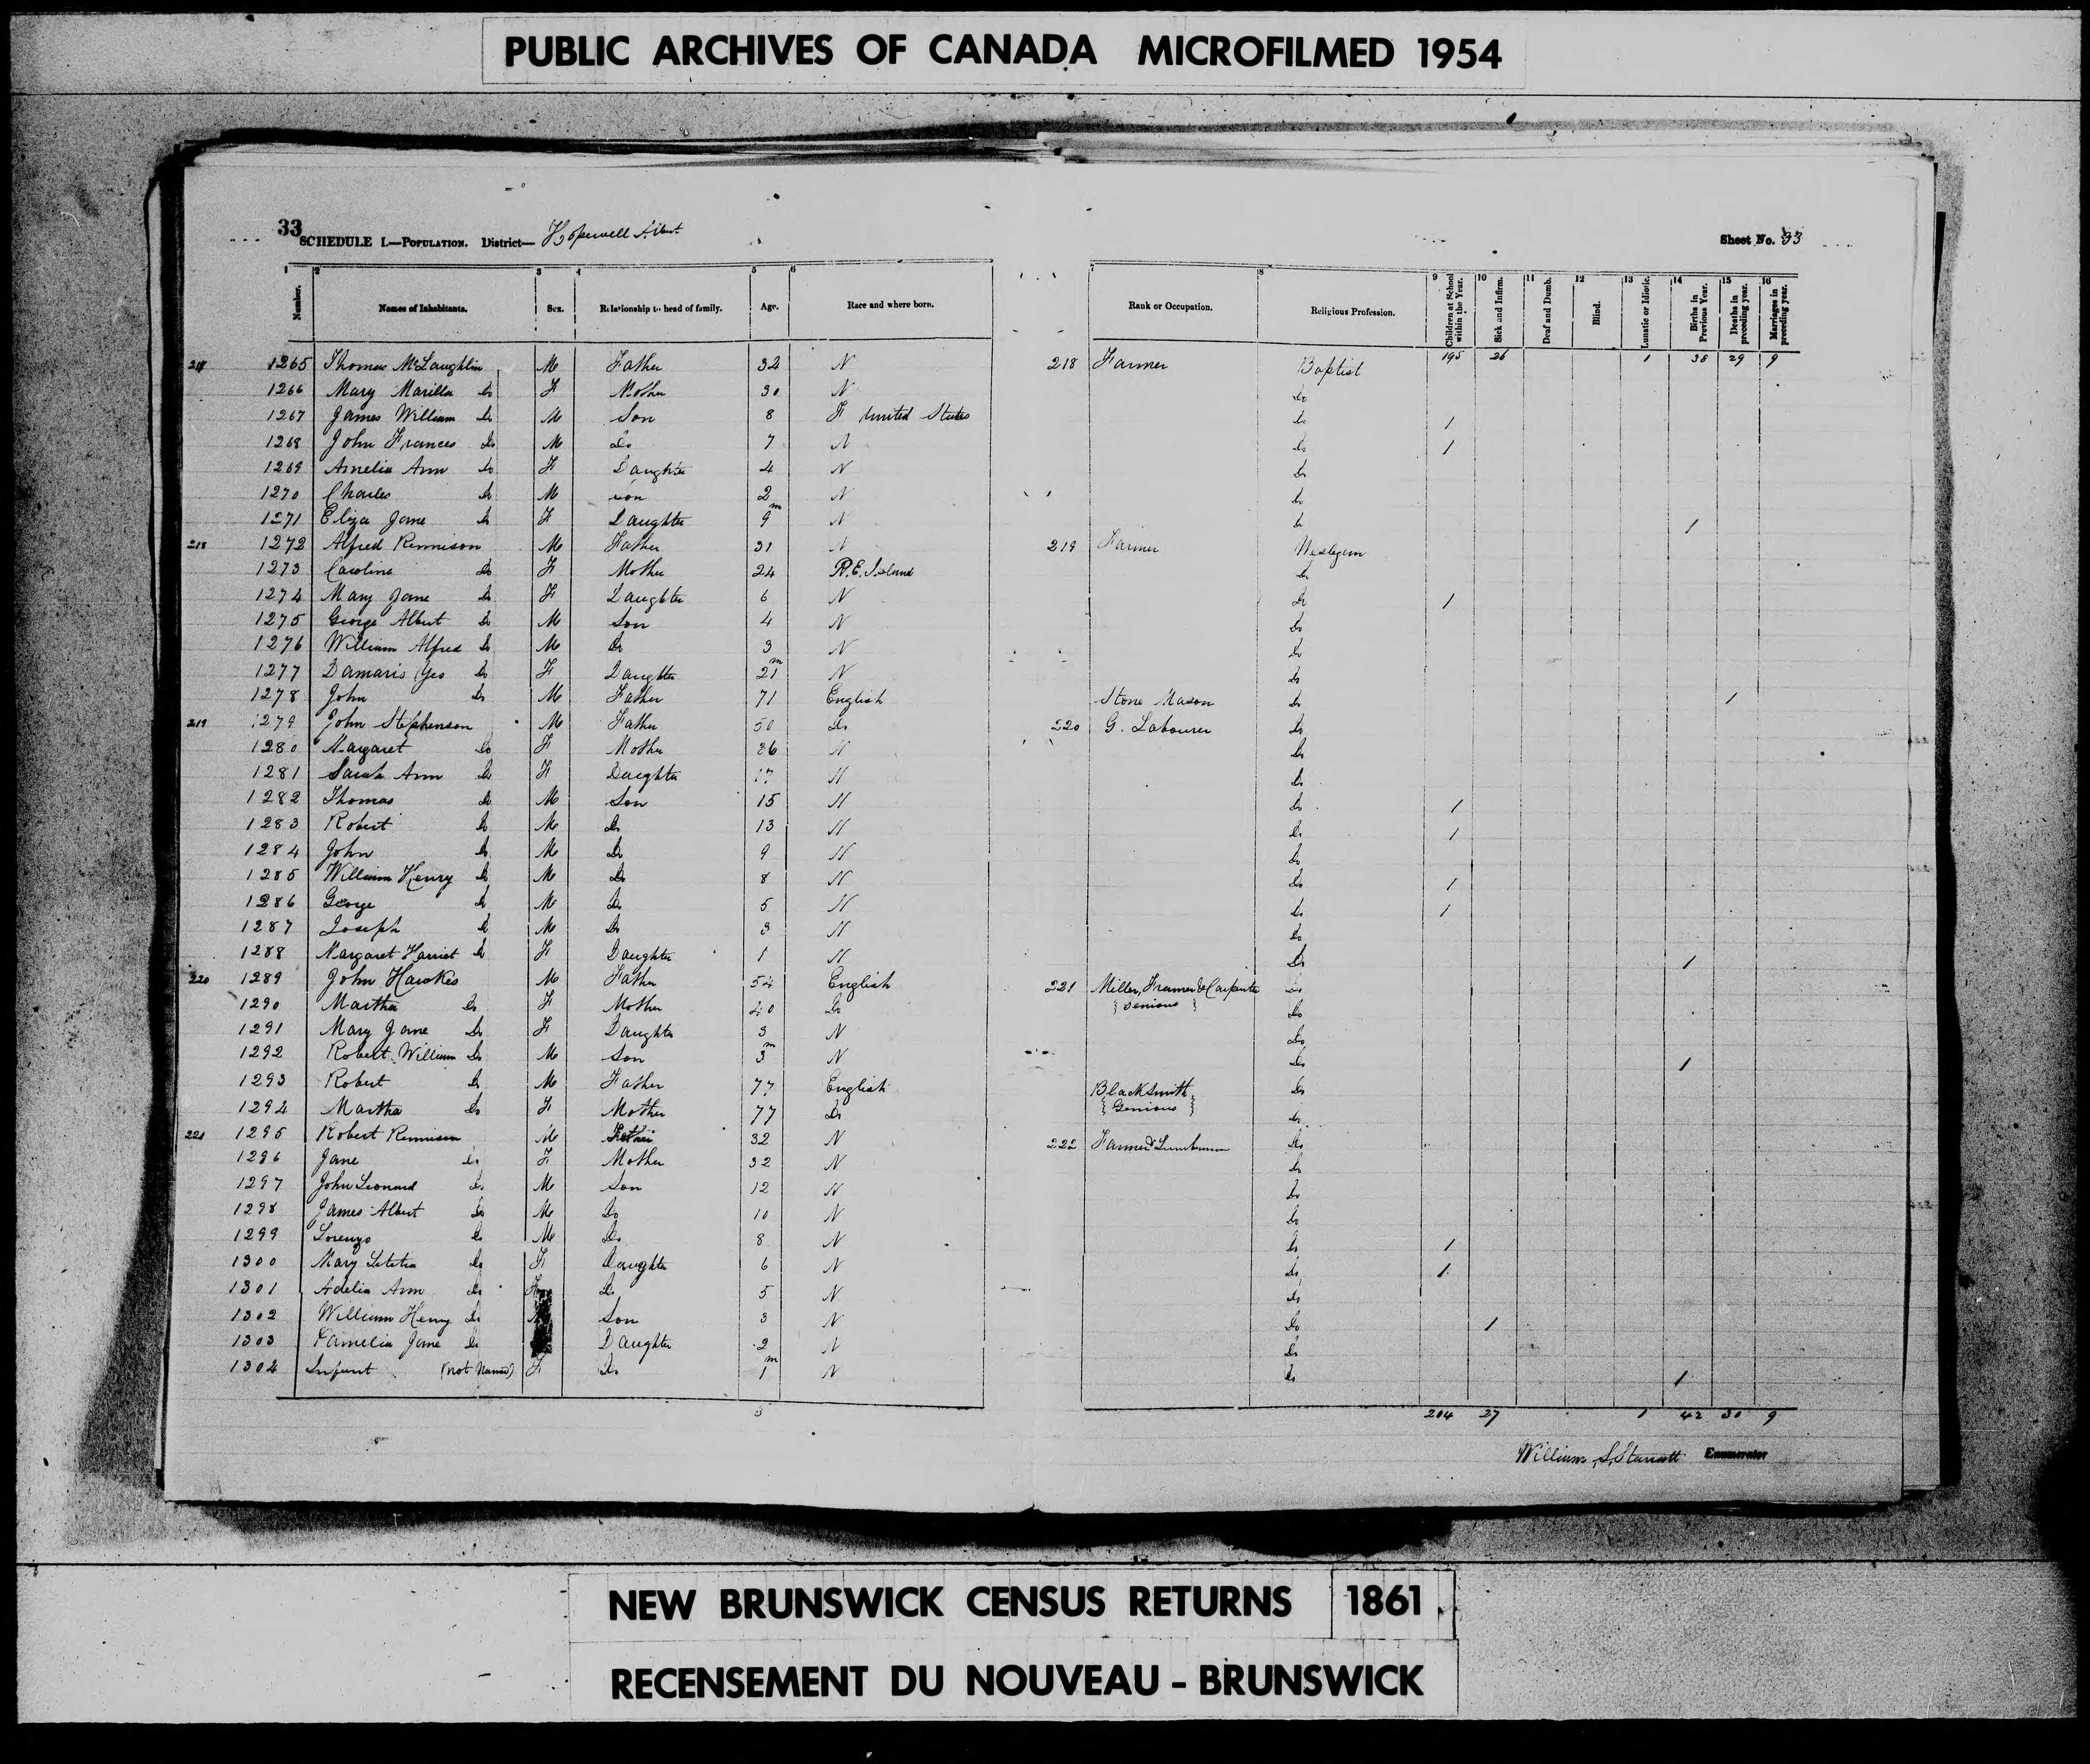 PUBLIC ARCHIVES OF CANADA MICROFILMED 1954
33 SCHEDULE I.—POPULATION. District— Hopewell Albert Sheet No. 33
1 2 3 4 5 6 7 8 9 10 11 12 13 14 15 16
Number. Names of Inhabitants. Sex. Relationship to head of family. Age. Race and where born. Rank or Occupation. Religious Profession. Children at School within the Year. Sick and Infirm. Deaf and Dumb. Blind. Lunatic or Idiotic. Births in Previous Year. Deaths in preceding year. Marriages in preceding year.
1265 Thomas McLaughlin M Father 32 N 218 Farmer Baptist 195 26 1 38 29 9
1266 Mary Marilla Do F Mother 30 N Do
1267 James William Do M Son 8 F United States Do 1
1268 John Frances Do M Do 7 N Do 1
1269 Amelia Ann Do F Daughter 4 N Do
1270 Charles Do M Son 2 N Do
1271 Eliza Jane Do F Daughter 9m N Do 1
218 1272 Alfred Rennison M Father 31 N 219 Farmer Wesleyan
1273 Caroline Do F Mother 24 P.E. Island Do
1274 Mary Jane Do F Daughter 6 N Do 1
1275 George Albert Do M Son 4 N Do
1276 William Alfred Do M Do 3 N Do
1277 Damaris Yeo Do F Daughter 21m N Do
1278 John Do M Father 71 English Stone Mason Do 1
219 1279 John Stephenson M Father 50 Do 220 G. Labourer Do
1280 Margaret Do F Mother 36 N Do
1281 Sarah Ann Do F Daughter 17 N Do
1282 Thomas Do M Son 15 N Do 1
1283 Robert Do M Do 13 N Do 1
1284 John Do M Do 9 N Do
1285 William Henry Do M Do 8 N Do 1
1286 George Do M Do 5 N Do 1
1287 Joseph Do M Do 3 N Do
1288 Margaret Harriet Do F Daughter 1 N Do 1
220 1289 John Hawkes M Father 54 English 221 Miller, Framer & Carpenter Do
1290 Martha Do F Mother 40 Do { Genious } Do
1291 Mary Jane Do F Daughter 3 N Do
1292 Robert William Do M Son 3m N Do 1
1293 Robert Do M Father 77 English Blacksmith Do
1294 Martha Do F Mother 77 Do { Genious } Do
221 1295 Robert Rennison M Father 32 N 222 Farmer & Lumberman Do
1296 Jane Do F Mother 32 N Do
1297 John Leonard Do M Son 12 N Do
1298 James Albert Do M Do 10 N Do
1299 Lorenzo Do M Do 8 N Do 1
1300 Mary Letetia Do F Daughter 6 N Do 1
1301 Adelia Ann Do F Do 5 N Do
1302 William Henry Do Son 3 N Do 1
1303 Pamelia Jane Do Daughter 2 N Do
1304 Infant (not Named) F Do 1m N Do 1
204 27 1 42 30 9
William S. Starratt Enumerator
NEW BRUNSWICK CENSUS RETURNS 1861
RECENSEMENT DU NOUVEAU - BRUNSWICK